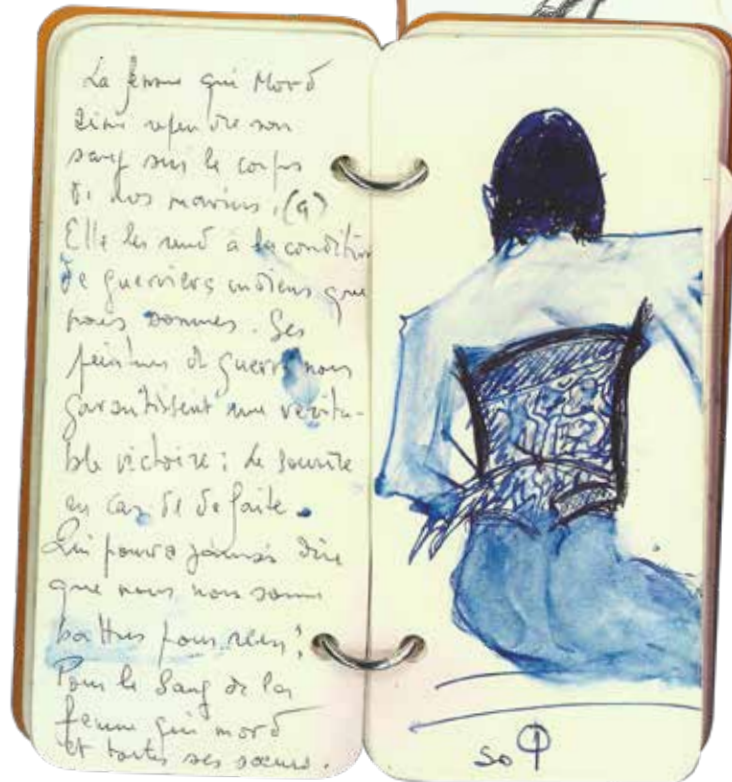 La femme qui Mord
répendre son
sang sur le corps
de nos marins. (a)
Elle les rend à la condition
de guerriers indiens que
nous sommes. Ses
peintures de guerre nous
garantissent une vérita-
ble victoire : le sourire
en cas de défaite.
Qui pourra jamais dire
que nous nous sommes
battus pour rien ?
Pour le Sang de la
femme qui mord
et toutes ses sœurs.
so